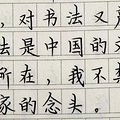 ，对书法又产
法是中国的文
所在，我不禁
家的念头。